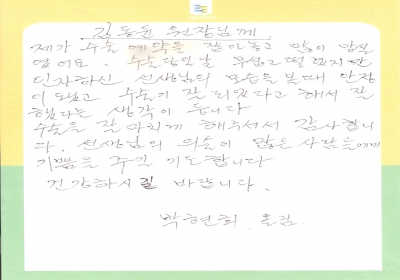 김동윤 원장님께
제가 수술 예약을 잡아놓고 많이 망설
였어요. 수술당일날 무섭고 떨렸지만
인자하신 선생님의 모습을 볼때 안정
이 되었고 수술이 잘 되었다고 해서 잘
했다는 생각이 듭니다
수술을 잘 마치게 해주셔서 감사합니
다. 선생님의 의술이 많은 사람들에게
기쁨을 주길 기도합니다
건강하시길 바랍니다.
박현희 올림